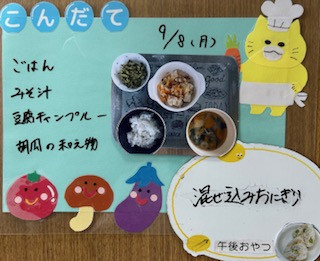 こんだて
9/8(月)
ごはん
みそ汁
豆腐チャンプルー
胡瓜の和え物
混ぜ込みおにぎり
午後おやつ